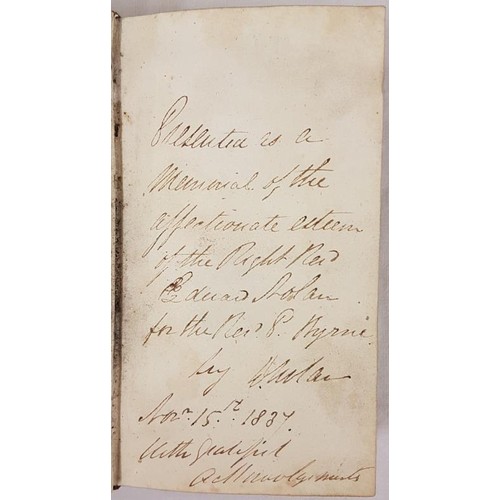 Presented as a
Memorial of the
affectionate esteem
of the Right Revd
Edward Nolan
for the Revd. P. Byrne
by
Novr. 15th. 1837.
With grateful
acknowledgments